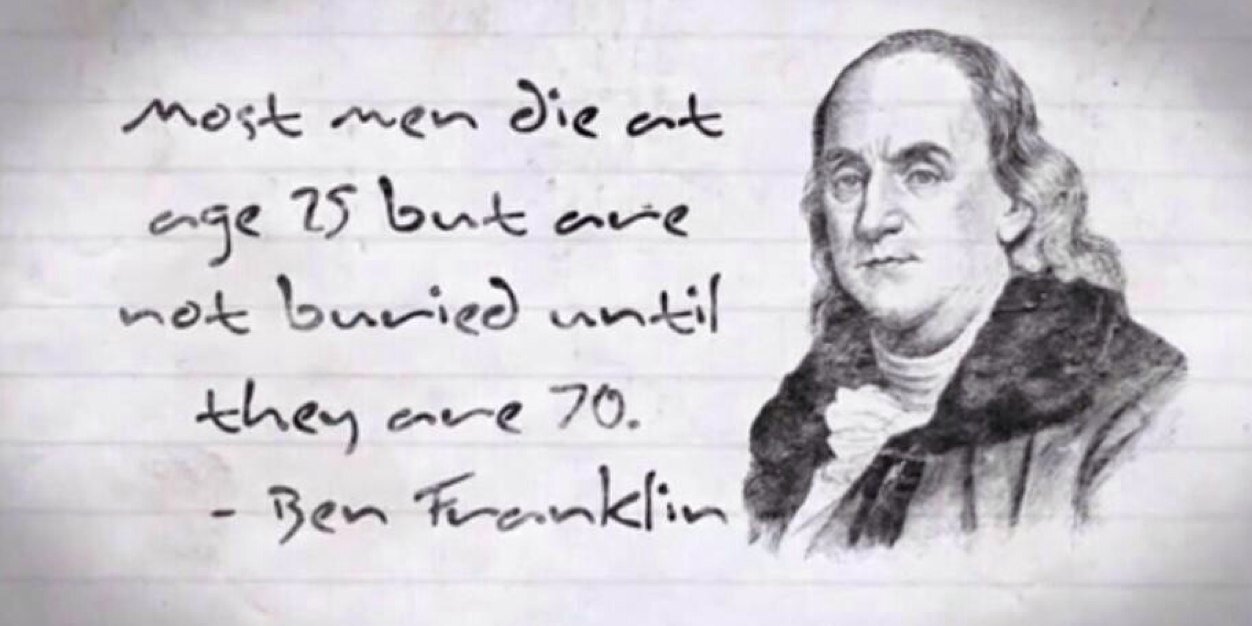 Most men die at
age 25 but are
not buried until
they are 70.
- Ben Franklin